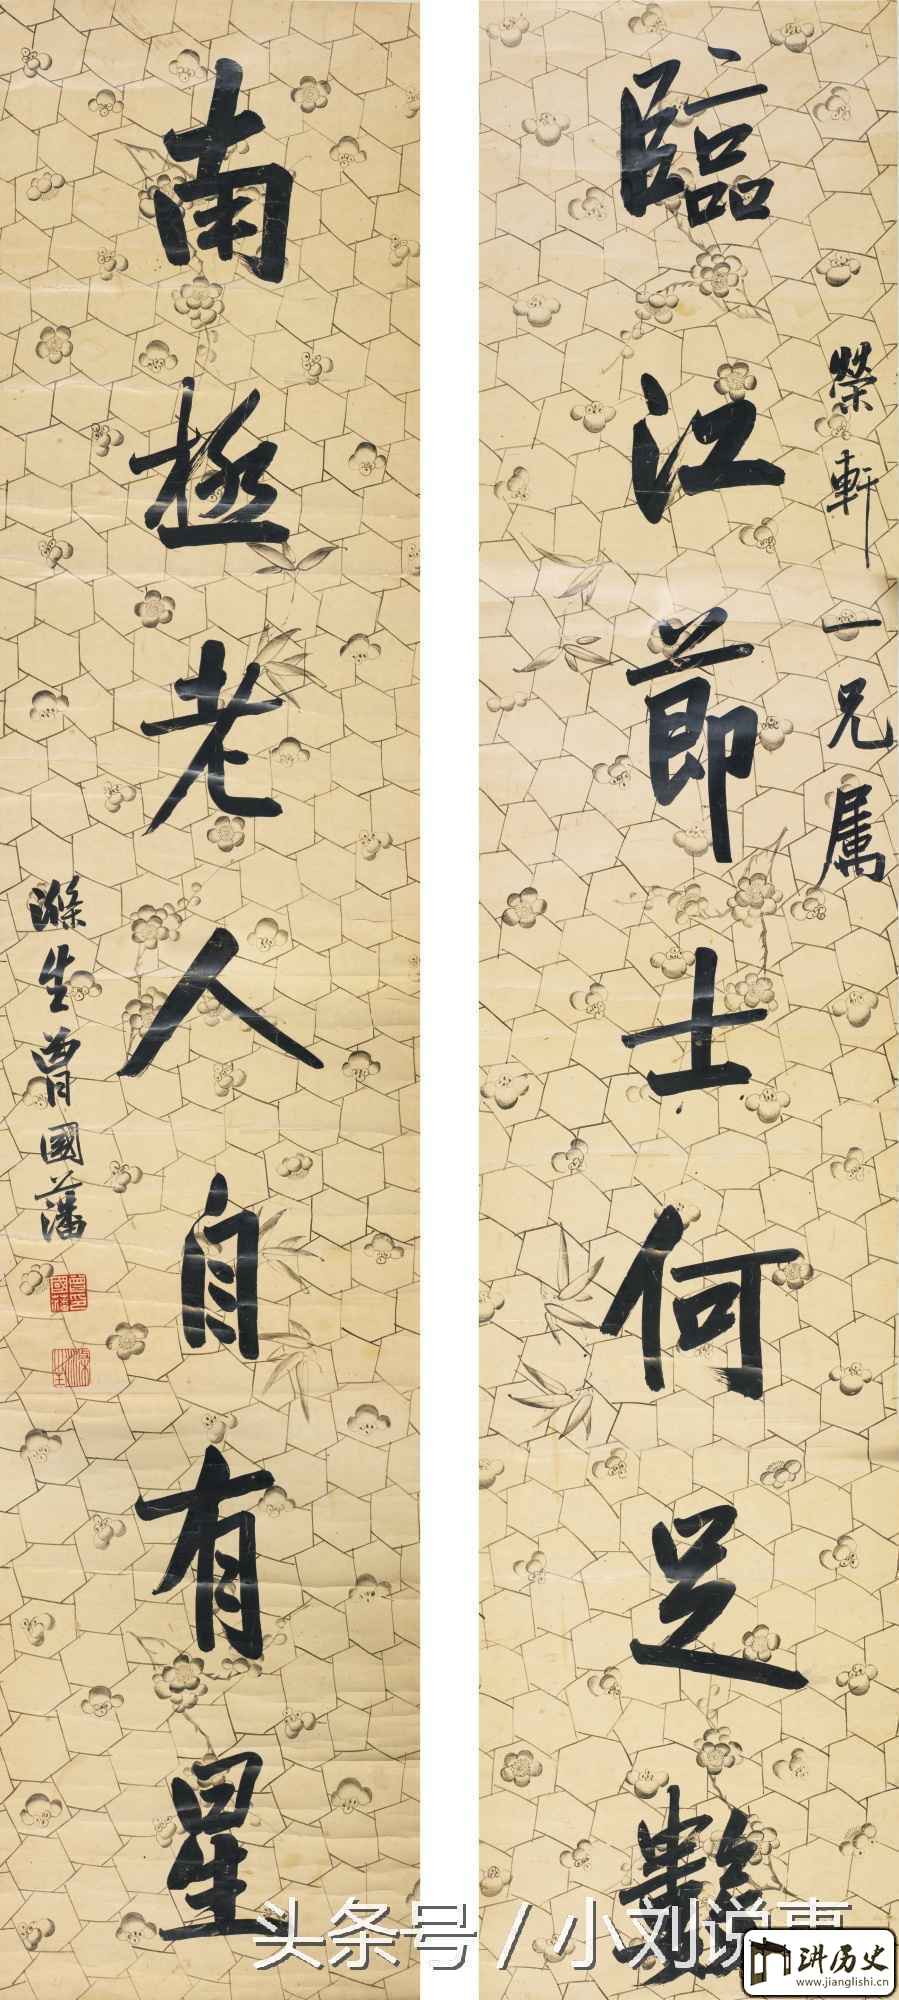 榮軒一兄屬
臨江節士何足數
南極老人自有星
滌生曾國藩
曾印國藩
滌生
头条号 / 小刘说事
讲历史
www.jianglishi.cn